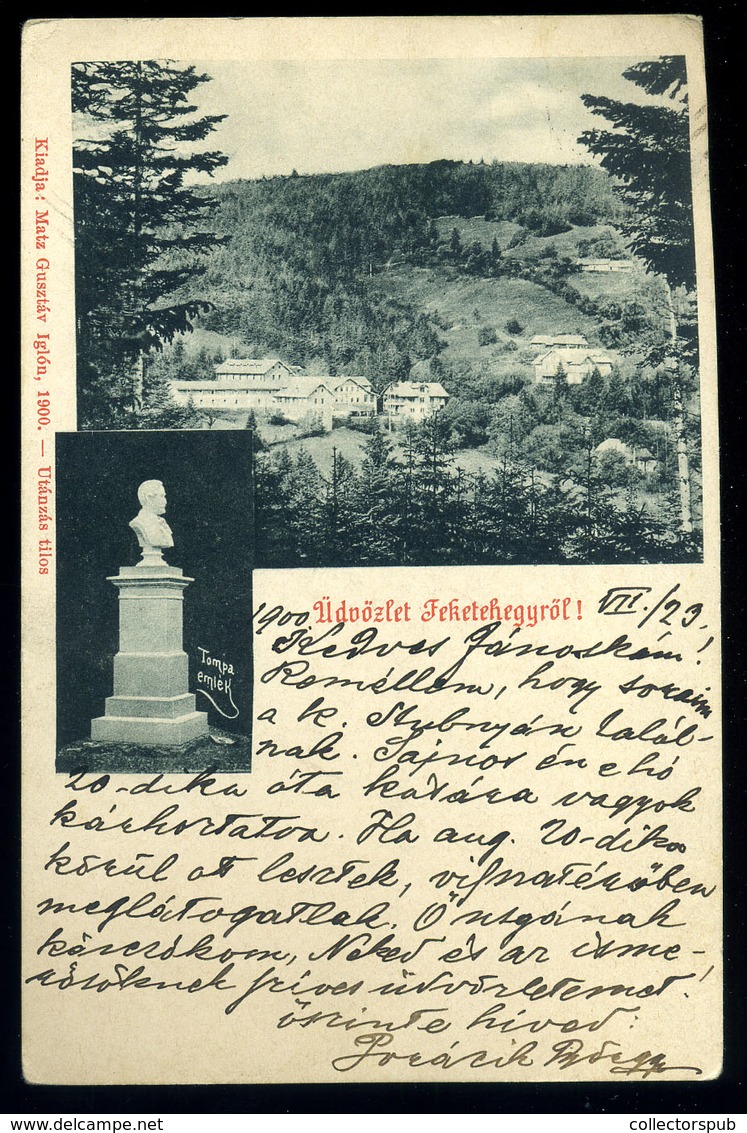 Kiadja: Matz Gusztáv Iglón, 1900. — Utánzás tilos
Tompa
emlék
Üdvözlet Feketehegyről!
1900 VII./23.
Kedves Jánoskám!
Remélem, hogy soraim
a k. Stubnyán talál-
nak. Sajnos én e hó
20-dika óta kúrára vagyok
kárhoztatva. Ha aug. 20-dika
körül ott lesztek, visszatérőben
meglátogatlak. Ő nsgának
kézcsókom, Neked és az isme-
rősöknek szíves üdvözletemet!
őszinte híved:
Porácik György
collectorspub
www.delcampe.net